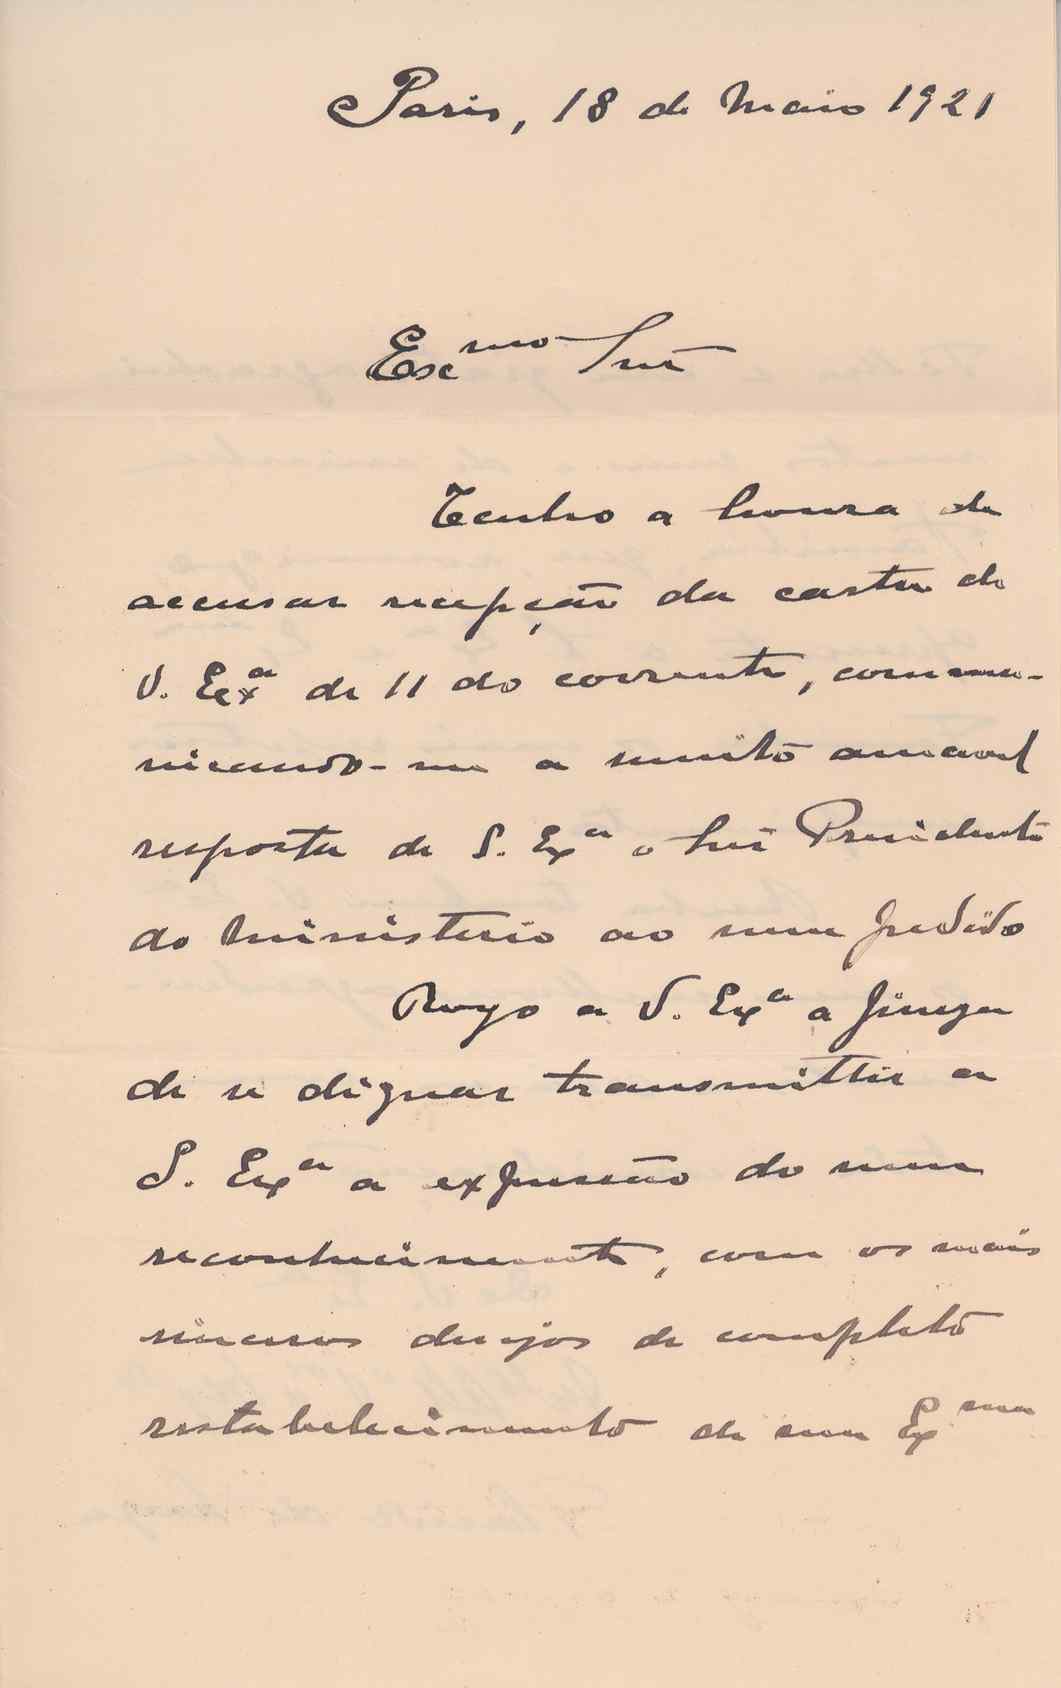 Paris, 18 de Maio 1921
Exc^mo Snr
Tenho a honra de
accusar recepção da carta de
V. Ex^a de 11 do corrente, commu-
nicando-me a muito amavel
resposta de S. Ex^a o Snr Presidente
do Ministerio ao meu pedido
Rogo a V. Ex^a a fineza
de se dignar transmittir a
S. Ex^a a expressão do meu
reconhecimento, com os mais
sinceros desejos de completo
restabelecimento de sua Ex^ma